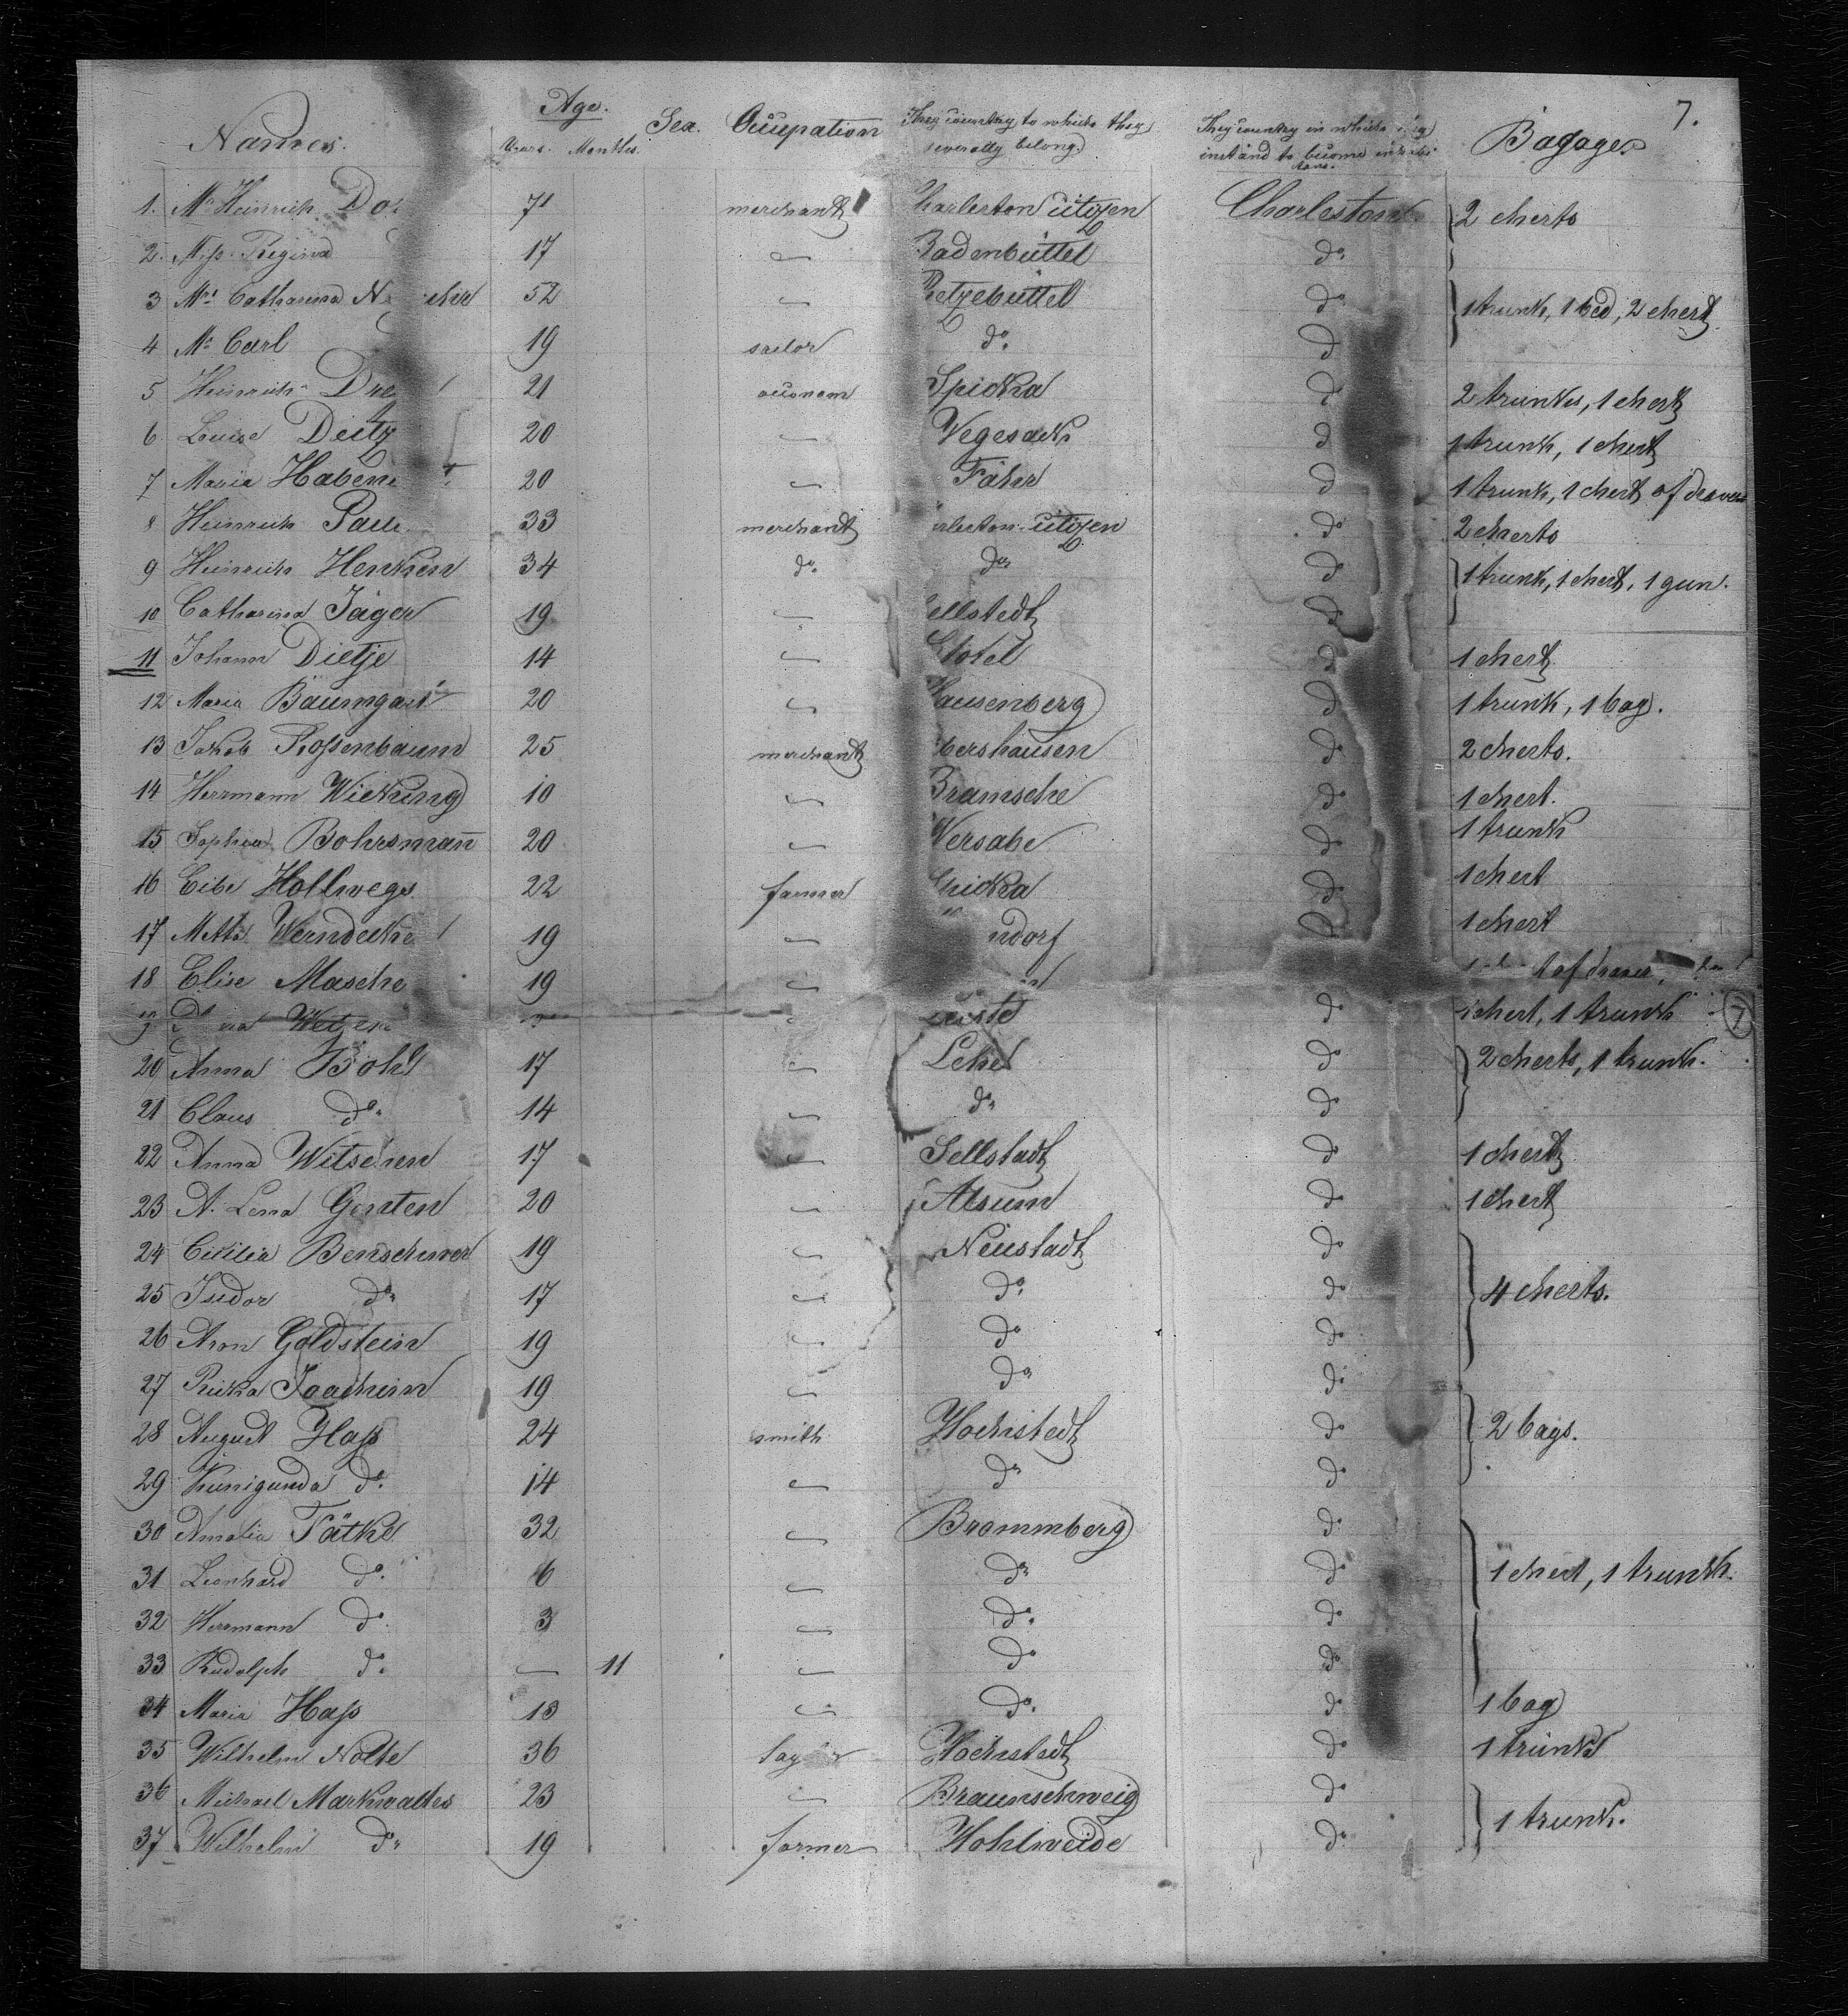 7.
Names. Age. Sex. Occupation They country to which they Bagage.
Years. Months. severally belong. They country in which they
instand to become
1. Mr Heinrich 71 merchant Charleston citizen Charleston 2 cherts
2. Miss Regina 17 — Badenbüttel do
3 Mrs Catharina 52 — Ritzebüttel do 1 trunk, 1 bed, 2 chert
4 Mr Carl 19 sailor do. do
5 Heinrich 21 oeconom Spicka do 2 trunks, 1 chert
6. Luise Deitz 20 — Vegesack do 1 trunk, 1 chert
7 Maria 20 — Fähr do 1 trunk, 1 chert of
8 Heinrich 33 merchant citizen do 2 cherts
9 Heinrich Henken 34 do. do. do 1 trunk, 1 chert, 1 gun.
10 Catharina Jäger 19 — ellstedt do
11 Johann Dietje 14 — Stotel do 1 chert
12 Maria Baumgart 20 — ausenberg do 1 trunk, 1 bag.
13 Jakob Rossenbaum 25 merchant bershausen do 2 cherts.
14 Herrmann Wieking 10 — Bramsche do 1 chert.
15 Sophia Bohrsman̄ 20 — Wersabe do 1 trunk
16 Eibe Hollwegs 22 farmer Spicka do 1 chert
17 Metta 19 — ndorf do 1 chert
18 Elise Masche 19 — of
do 1 chert, 1 trunk 7
20 Anna Bohl 17 — Lehe do 2 cherts, 1 trunk.
21 Claus do. 14 — do. do
22 Anna Witschen 17 — Sellstadt do 1 chert
23 A. Lena Gersten 20 — Alsum do 1 chert
24 Cicilia Benschwer 19 — Neustadt do
25 Isidor do. 17 — do. do 4 cherts.
26 Aron Goldstein 19 — do do
27 Ricka Joachim 19 — do. do
28 August Hass 24 smith Hochstedt do 2 bags.
29 Kunigunda do. 14 — do. do
30 Amalia Tätke 32 — Brommberg do
31 Leonhard do. 6 — do. do 1 chert, 1 trunk.
32 Herrmann do 3 — do. do
33 Rudolph do. — 11 — do do
34 Maria Hass 13 — do. do 1 bag
35 Wilhelm Nolte 36 Hochstedt do 1 trunk
36 Michael Markwaltes 23 — Braunschweig do
37 Wilhelm do. 19 farmer Hohlweide do. 1 trunk.